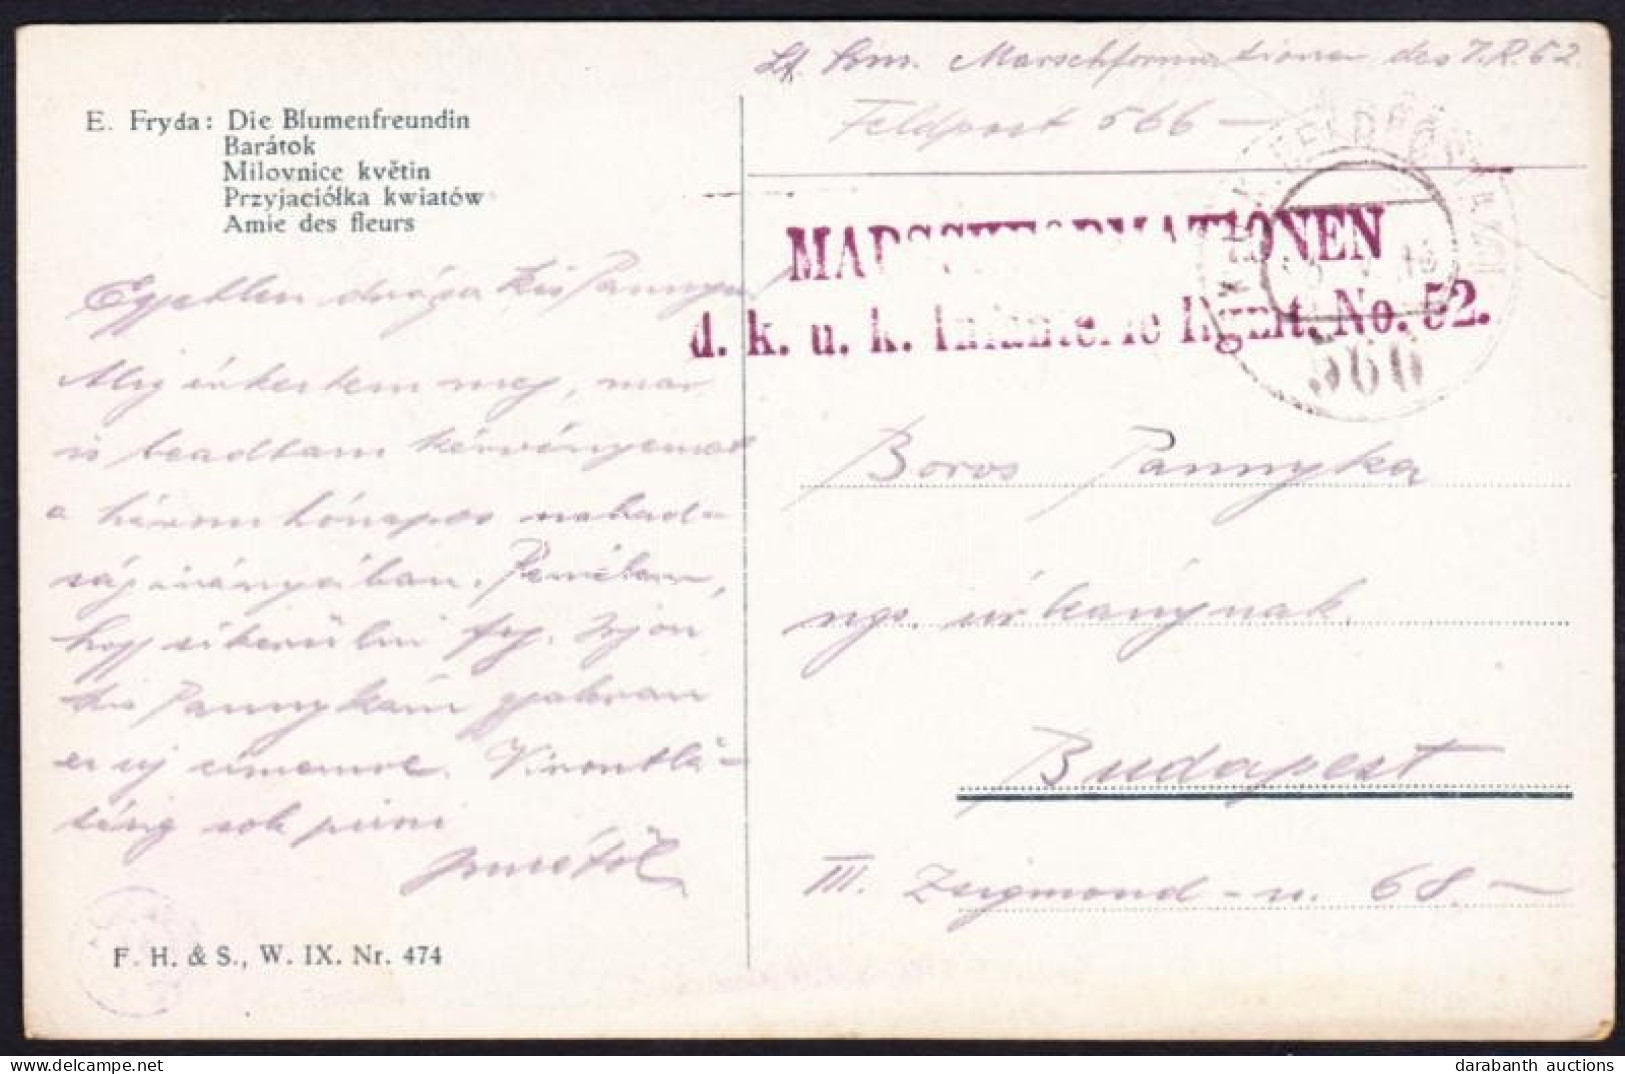 E. Fryda: Die Blumenfreundin
Barátok
Milovnice květin
Przyjaciółka kwiatów
Amie des fleurs
Egyetlen drága kis Pannyka!
Alig érkeztem meg, mar
is beadtam kérvényemet
a három hónapos szabad-
ságirányában. Remélem,
hogy sikerülni fog. Irjon
kis Pannykám gyakran
ez új címemre. Viszontlá-
tásig sok puszi
F. H. & S., W. IX. Nr. 474
Marschformationen des I.R. 52.
Feldpost 566 —
MARSCHFORMATIONEN
d. k. u. k. Infanterie Rgmt. No. 52.
566
Boros Pannyka
ngs. úrleánynak.
Budapest
III. Zsigmond-u. 68. —
darabanth auctions